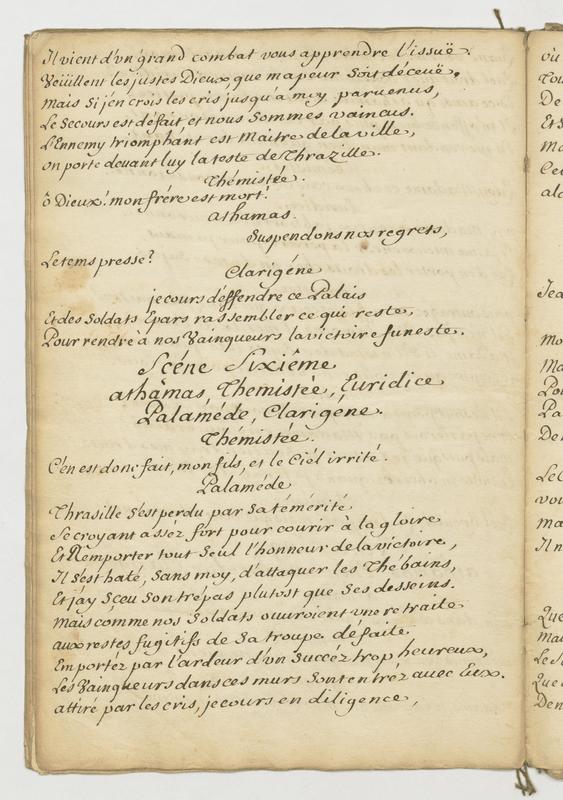 Il vient d'vn grand combat vous apprendre l'issuë.
Veüillent les justes Dieux, que ma peur soit déceuë.
Mais si j'en crois les cris jusqu'à moy paruenus,
Le secours est défait, et nous sommes vaincus.
L'Ennemy triomphant est Maitre de la ville,
on porte deuant luy la teste de Thrazille.
Thémistée.
ô Dieux! mon frére est mort!
athamas.
Suspendons nos regrets,
Le tems presse?
Clarigéne
je cours déffendre ce Palais
Et des Soldats Epars rassembler ce qui reste,
Pour rendre à nos Vainqueurs la victoire funeste.
Scéne Sixiême
athâmas, Themistée, Euridice
Palaméde, Clarigéne.
Thémistée.
C'en est donc fait, mon fils, et le Ciél irrité.
Palaméde
Thrasille s'est perdu par sa témérité
Se croyant assèz fort pour courir à la gloire
Et Remporter tout seul l'honneur de la victoire,
Il s'est haté, sans moy, d'attaquer les Thébains,
Et j'ay sceu son trépas plutost que ses desseins.
Mais comme nos soldats ouuroient vne retraite
aux restes fugitifs de sa troupe défaite,
Emportez par l'ardeur d'vn succéz trop heureux,
Les Vainqueurs dans ces murs sont entréz auec Eux.
attiré par les cris, je cours en diligence,
où
Et s
Ma
alo
Jea
mo
Ma
Po
Pa
De
vou
ma
Il n
Que
mai
Le s
Que
Den